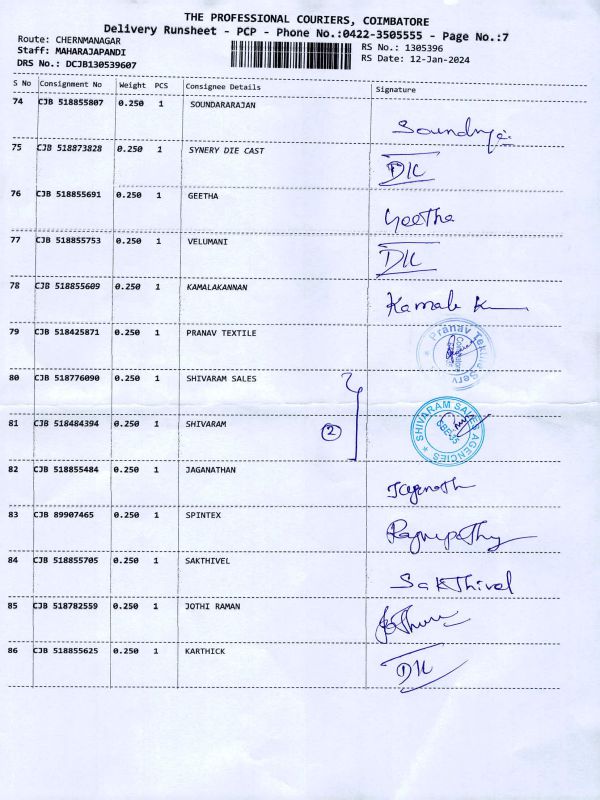 THE PROFESSIONAL COURIERS, COIMBATORE
Delivery Runsheet - PCP - Phone No.:0422-3505555 - Page No.:7
Route: CHERNMANAGAR
RS No.: 1305396
Staff: MAHARAJAPANDI
RS Date: 12-Jan-2024
DRS No.: DCJB130539607
S No Consignment No Weight PCS Consignee Details Signature
74 CJB 518855807 0.250 1 SOUNDARARAJAN
75 CJB 518873828 0.250 1 SYNERY DIE CAST
76 CJB 518855691 0.250 1 GEETHA Geetha
77 CJB 518855753 0.250 1 VELUMANI
78 CJB 518855609 0.250 1 KAMALAKANNAN Kamala K
79 CJB 518425871 0.250 1 PRANAV TEXTILE
80 CJB 518776090 0.250 1 SHIVARAM SALES
81 CJB 518484394 0.250 1 SHIVARAM 2 SHIVARAM SALES AGENCIES CBE-35
82 CJB 518855484 0.250 1 JAGANATHAN Jaganath
83 CJB 89907465 0.250 1 SPINTEX
84 CJB 518855705 0.250 1 SAKTHIVEL SakThivel
85 CJB 518782559 0.250 1 JOTHI RAMAN
86 CJB 518855625 0.250 1 KARTHICK